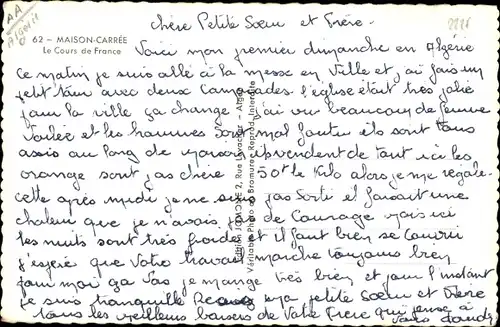 AA
Algérie
62 — MAISON-CARRÉE
Le Cours de France
chère Petite Sœur et Frère.
Voici mon premier dimanche en Algérie
ce matin je suis allé à la messe en Ville et j'ai fais un
petit tour avec deux Camarades l'église était très jolie
pour la ville ça change j'ai vu beaucoup de femme
Voilée et les hommes sont mal foutu ils sont tous
assis au long de maison vendent de tout ici les
orange sont pas chère 50f le Kilo alors je me régale.
cette après midi je ne suis pas sorti il faisait une
chaleur que je n'avais pas de Courage mais ici
les nuits sont très froides et il faut bien se couvrir
j'espère que Votre travail marche toujours bien
pour moi ça vas je mange très bien et pour l'instant
je suis tranquille Reçois ma petite Sœur et Frère
tous les meilleurs baisers de Votre Frère qui pense à
Vous
Véritable Photo au Bromure - Reprod. Interdite